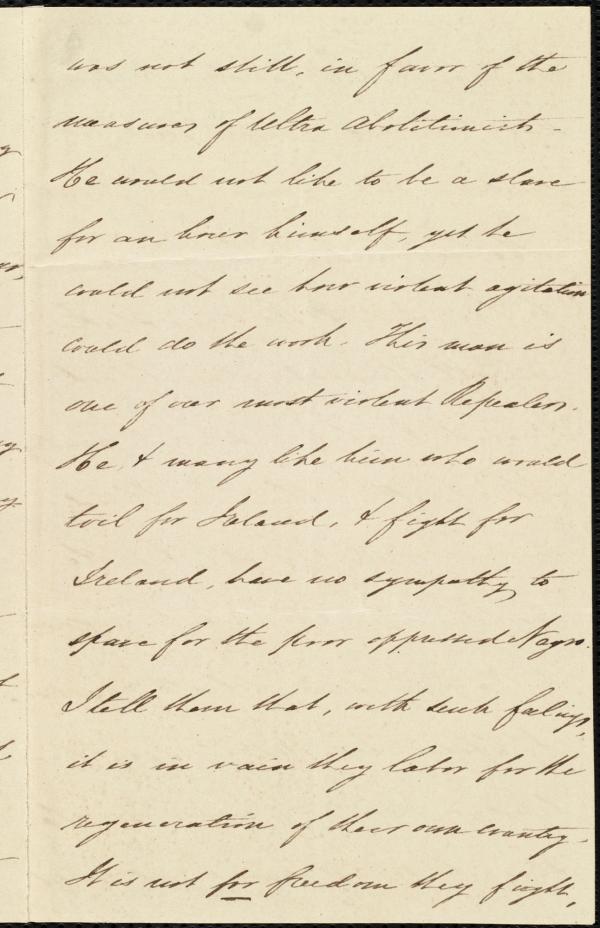 was not still, in favor of the
measures of Ultra Abolitionists.
He would not like to be a slave
for an hour himself, yet he
could not see how violent agitation
could do the work. This man is
one of our most violent Repealers.
He, & many like him who would
toil for Ireland, & fight for
Ireland, have no sympathy to
spare for the poor oppressed Negro.
I tell them that, with such feelings,
it is in vain they labor for the
regeneration of their own country.
It is not for freedom they fight,